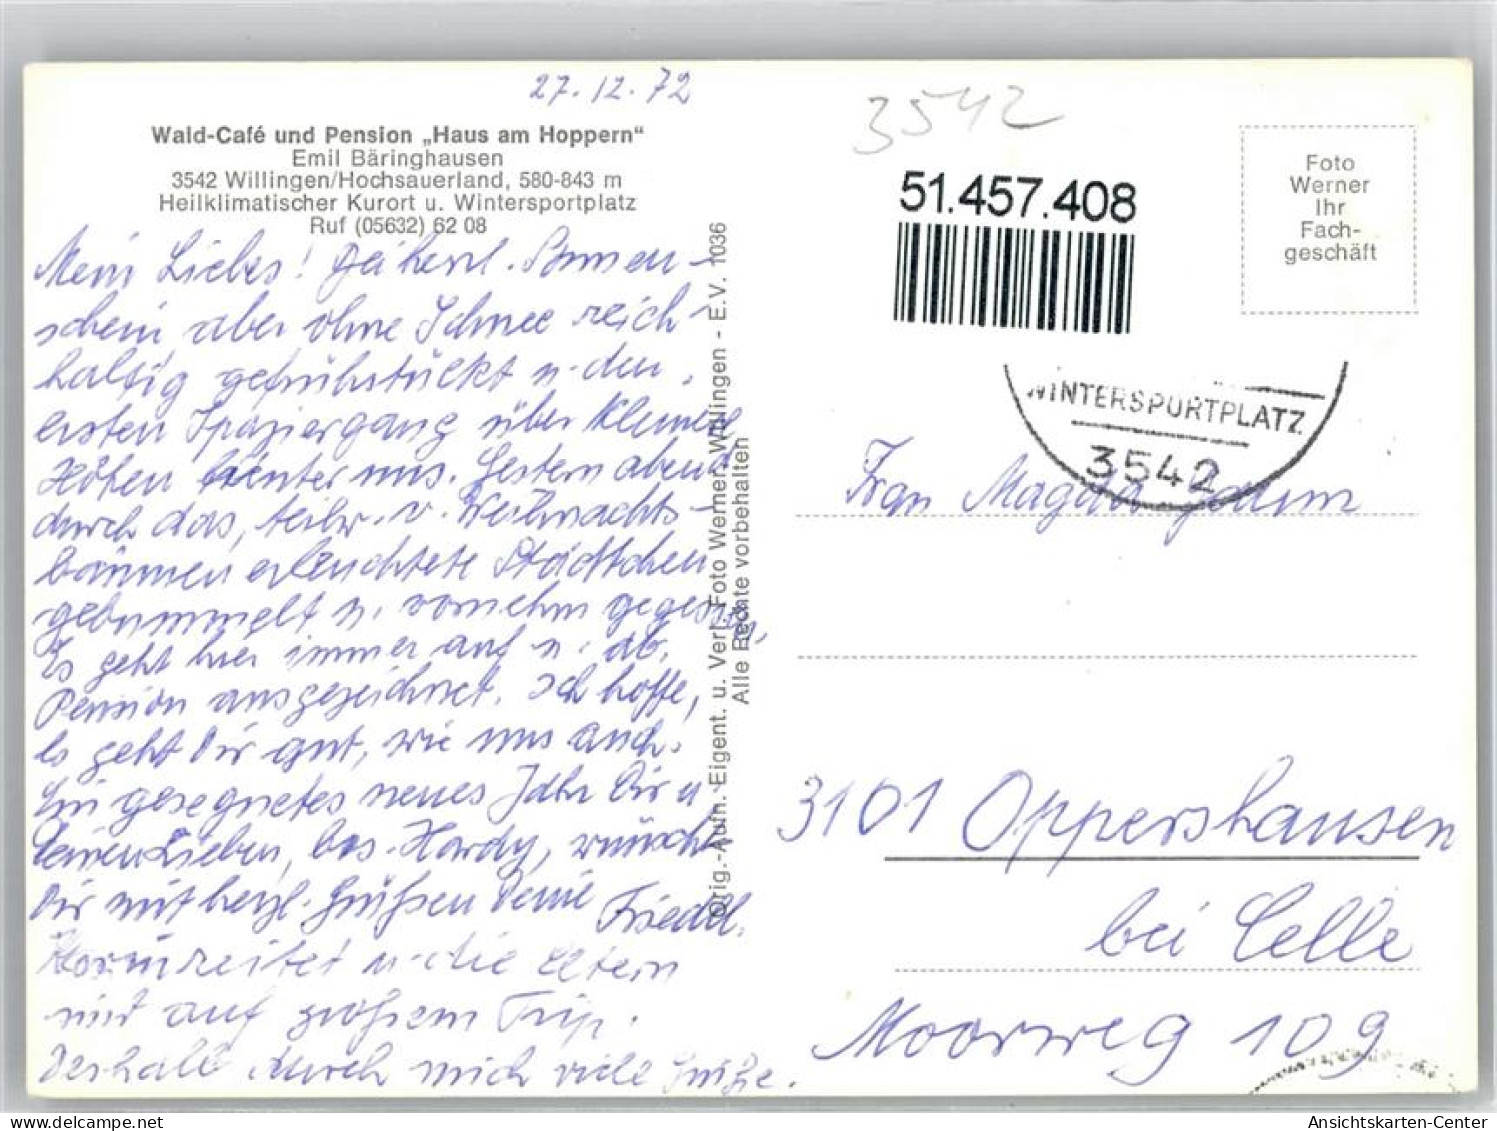 27.12.72
Wald-Café und Pension „Haus am Hoppern“
Emil Bäringhausen
3542 Willingen/Hochsauerland, 580-843 m
Heilklimatischer Kurort u. Wintersportplatz
Ruf (05632) 62 08
Mein Liebes! Bei herrl. Sonnen-
schein aber ohne Schnee reich-
haltig gefrühstückt u. den
ersten Spaziergang über kleinere
Höhen hinter uns. Gestern abend
durch das, teilw. v. Weihnachts-
bäumen erleuchtete Städtchen
gebummelt u. vornehm gegessen,
Es geht hier immer auf u. ab.
Pension ausgezeichnet. Ich hoffe,
es geht Dir gut, wie uns auch.
Ein gesegnetes neues Jahr Dir u
Deinen Lieben, bes. Hardy, wünscht
Dir mit herzl. Grüßen Deine Friedel.
reitet u. die Eltern
sind auf großem Trip.
Deshalb durch mich viele Grüße.
Orig.-Aufn. Eigent. u. Verl. Foto Werner, Willingen - E.V. 1036
Alle Rechte vorbehalten
3542
51.457.408
Foto
Werner
Ihr
Fach-
geschäft
WINTERSPORTPLATZ
3542
Frau Magda
3101 Oppershausen
bei Celle
Moorweg 109
Ansichtskarten-Center